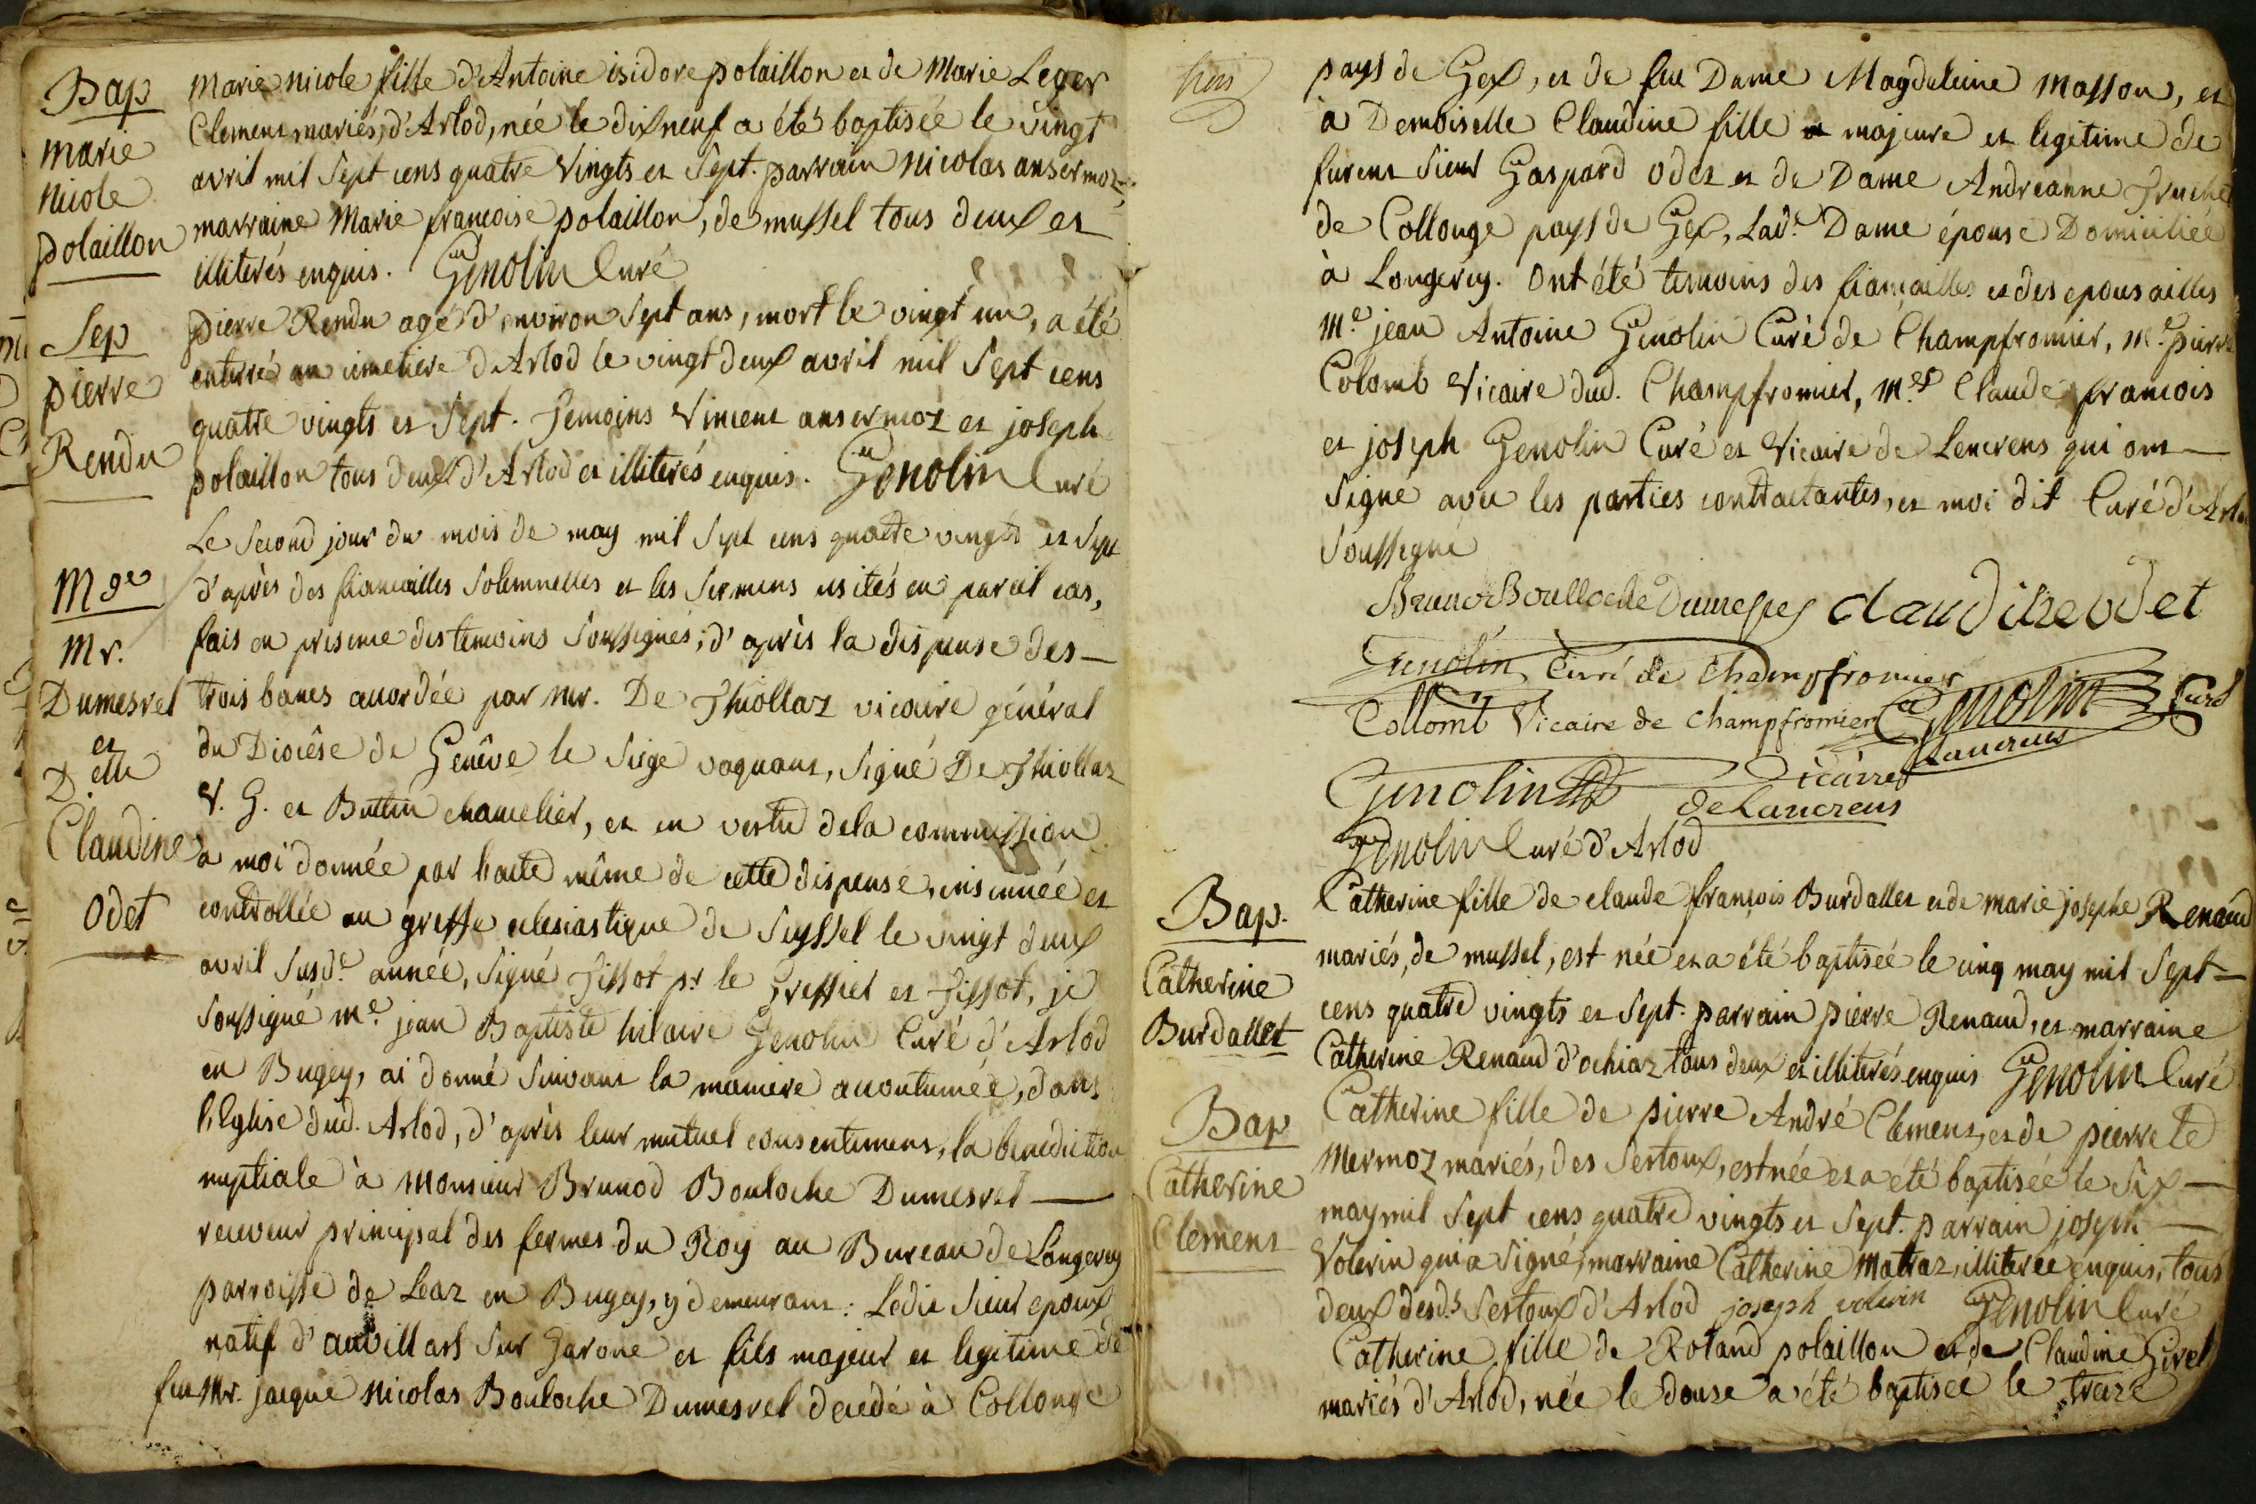 Bap
Marie
Nicole
polaillon
Marie Nicole fille d'Antoine isidore polaillon et de Marie Leger
Clement mariés, d'Arlod, née le dixneuf a été baptisée le vingt
avril mil sept cens quatre vingts et sept. parrain Nicolas ansermoz,
marraine Marie françoise polaillon, de mussel tous deux et
illiterés enquis. Genolin Curé
Sep
pierre
Rendu
pierre Rendu agé d'environ sept ans, mort le vingt un, a été
enterré au cimetiere d'Arlod le vingt deux avril mil sept cens
quatre vingts et sept. Temoins Vincent ansermoz et joseph
polaillon tous deux d'Arlod et illiterés enquis. Genolin Curé
Mge
Mr.
Dumesrel
et
D.elle
Claudine
Odet
Le second jour du mois de may mil sept cens quatre vingts et sept
d'après des fiancailles solemnelles et les sermens usités en pareil cas,
fais en presence des temoins soussignés; d'après la dispense des
trois bancs accordée par Mr. De Thiollaz vicaire général
du Diocèse de Genève le siege vaquant, signé De Thiollaz
V. G. et Buttin chancelier, et en vertu de la commission
a moi donnée par l'acte même de cette dispense, insinuée et
controllée au greffe eclesiastique de Seyssel le vingt deux
avril susde. année, signé Tissot pr. le Greffier et Tissot, je
soussigné me. jean Baptiste hilaire Genolin Curé d'Arlod
en Bugey, ai donné suivant la maniere accoutumée, dans
l'Eglise dud. Arlod, d'après leur mutuel consentement, la benediction
nuptiale à Monsieur Brunod Bouloche Dumesrel
receveur principal des fermes du Roy au Bureau de Longeray
parroisse de Leaz en Bugey, y demeurant: Ledit sieur epoux
natif d'auvillars sur Garone et fils majeur et legitime de
feu Mr. jacque Nicolas Bouloche Dumesrel decedé à Collonge
pays de Gex, et de feu Dame Magdeleine Masson, et
à Demoiselle Claudine fille majeure et legitime de
furent sieur Gaspard Odet et de Dame Andreanne
de Collonge pays de Gex, Lade. Dame épouse Domiciliée
à Longeray. Ont été temoins des fiancailles et des epousailles
Me. jean Antoine Genolin Curé de Champfromier, Me. pierre
Colomb Vicaire dud. Champfromier, Mes. Claude francois
et joseph Genolin Curé et Vicaire de Lencrens qui ont
signé avec les parties contractantes, et moi dit Curé d'Arlod
soussigné
Bruno Boulloche Dumesrel Claudine odet
Genolin, Curé de Champfromier
Collomb Vicaire de Champfromier Genolin Curé
Lancrens
Genolin Vicaire
de Lancrens
Genolin Curé d'Arlod
Bap.
Catherine
Burdallet
Catherine fille de claude françois Burdallet et de marie josephe Renaud
mariés, de mussel, est née et a été baptisée le cinq may mil sept
cens quatre vingts et sept. parrain pierre Renaud, et marraine
Catherine Renaud d'ochiaz tous deux et illiterés enquis Genolin Curé
Bap
Catherine
Clement
Catherine fille de pierre André Clement, et de pierrete
Mermoz mariés, des Sertoux, est née et a été baptisée le six
may mil sept cens quatre vingts et sept. parrain joseph
Volerin qui a signé, marraine Catherine Matraz, illiterée enquis, tous
deux desds. Sertoux d'Arlod joseph volerin Genolin Curé
Catherine fille de Roland polaillon et de Claudine Girel
mariés d'Arlod, née le douze a été baptisée le treize